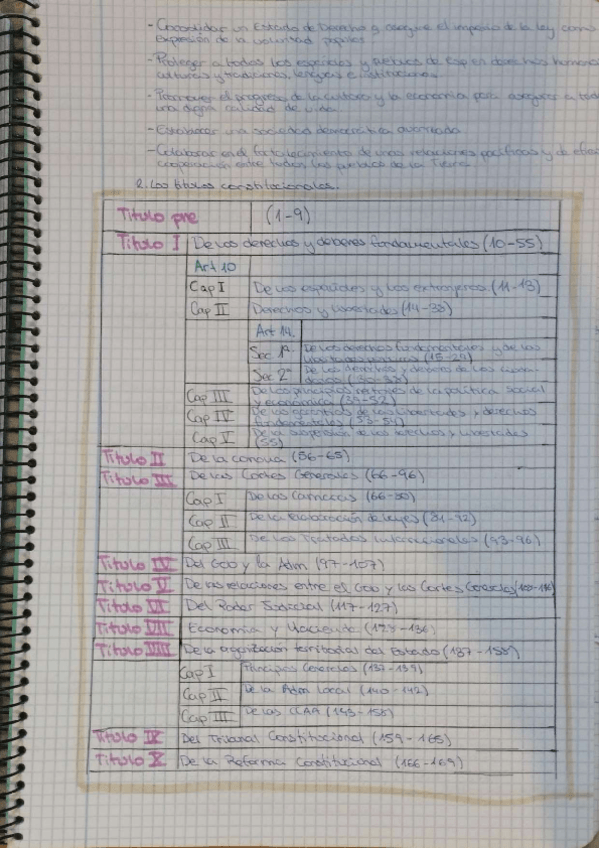 - Consolidar un Estado de Derecho q asegure el imperio de la ley como
expresión de la voluntad popular
- Proteger a todos los españoles y pueblos de Esp en derechos humanos
culturas y tradiciones, lenguas e instituciones
- Promover el progreso de la cultura y la economía para asegurar a todos
una digna calidad de vida
- Establecer una sociedad democrática avanzada
- Colaborar en el fortalecimiento de unas relaciones pacíficas y de eficaz
cooperación entre todos los pueblos de la Tierra
2. Los títulos constitucionales.
Titulo pre (1-9)
Titulo I De los derechos y deberes fundamentales (10-55)
Art 10
Cap I De los españoles y los extranjeros (11-13)
Cap II Derechos y libertades (14-38)
Art 14.
Sec 1ª De los derechos fundamentales y de las
libertades públicas (15-29)
Sec 2ª De los derechos y deberes de los ciuda-
danos (30-38)
Cap III De los principios rectores de la política social
y económica (39-52)
Cap IV De las garantías de las libertades y derechos
fundamentales (53-54)
Cap V De la suspensión de los derechos y libertades
(55)
Titulo II De la corona (56-65)
Titulo III De las Cortes Generales (66-96)
Cap I De las Cámaras (66-80)
Cap II De la elaboración de leyes (81-92)
Cap III De los Tratados Internacionales (93-96)
Titulo IV Del Gob y la Adm (97-107)
Titulo V De las relaciones entre el Gob y las Cortes Generales (108-116)
Titulo VI Del Poder Judicial (117-127)
Titulo VII Economía y Hacienda (128-136)
Titulo VIII De la organización territorial del Estado (137-158)
Cap I Principios Generales (137-139)
Cap II De la Adm Local (140-142)
Cap III De las CCAA (143-158)
Titulo IX Del Tribunal Constitucional (159-165)
Titulo X De la Reforma Constitucional (166-169)